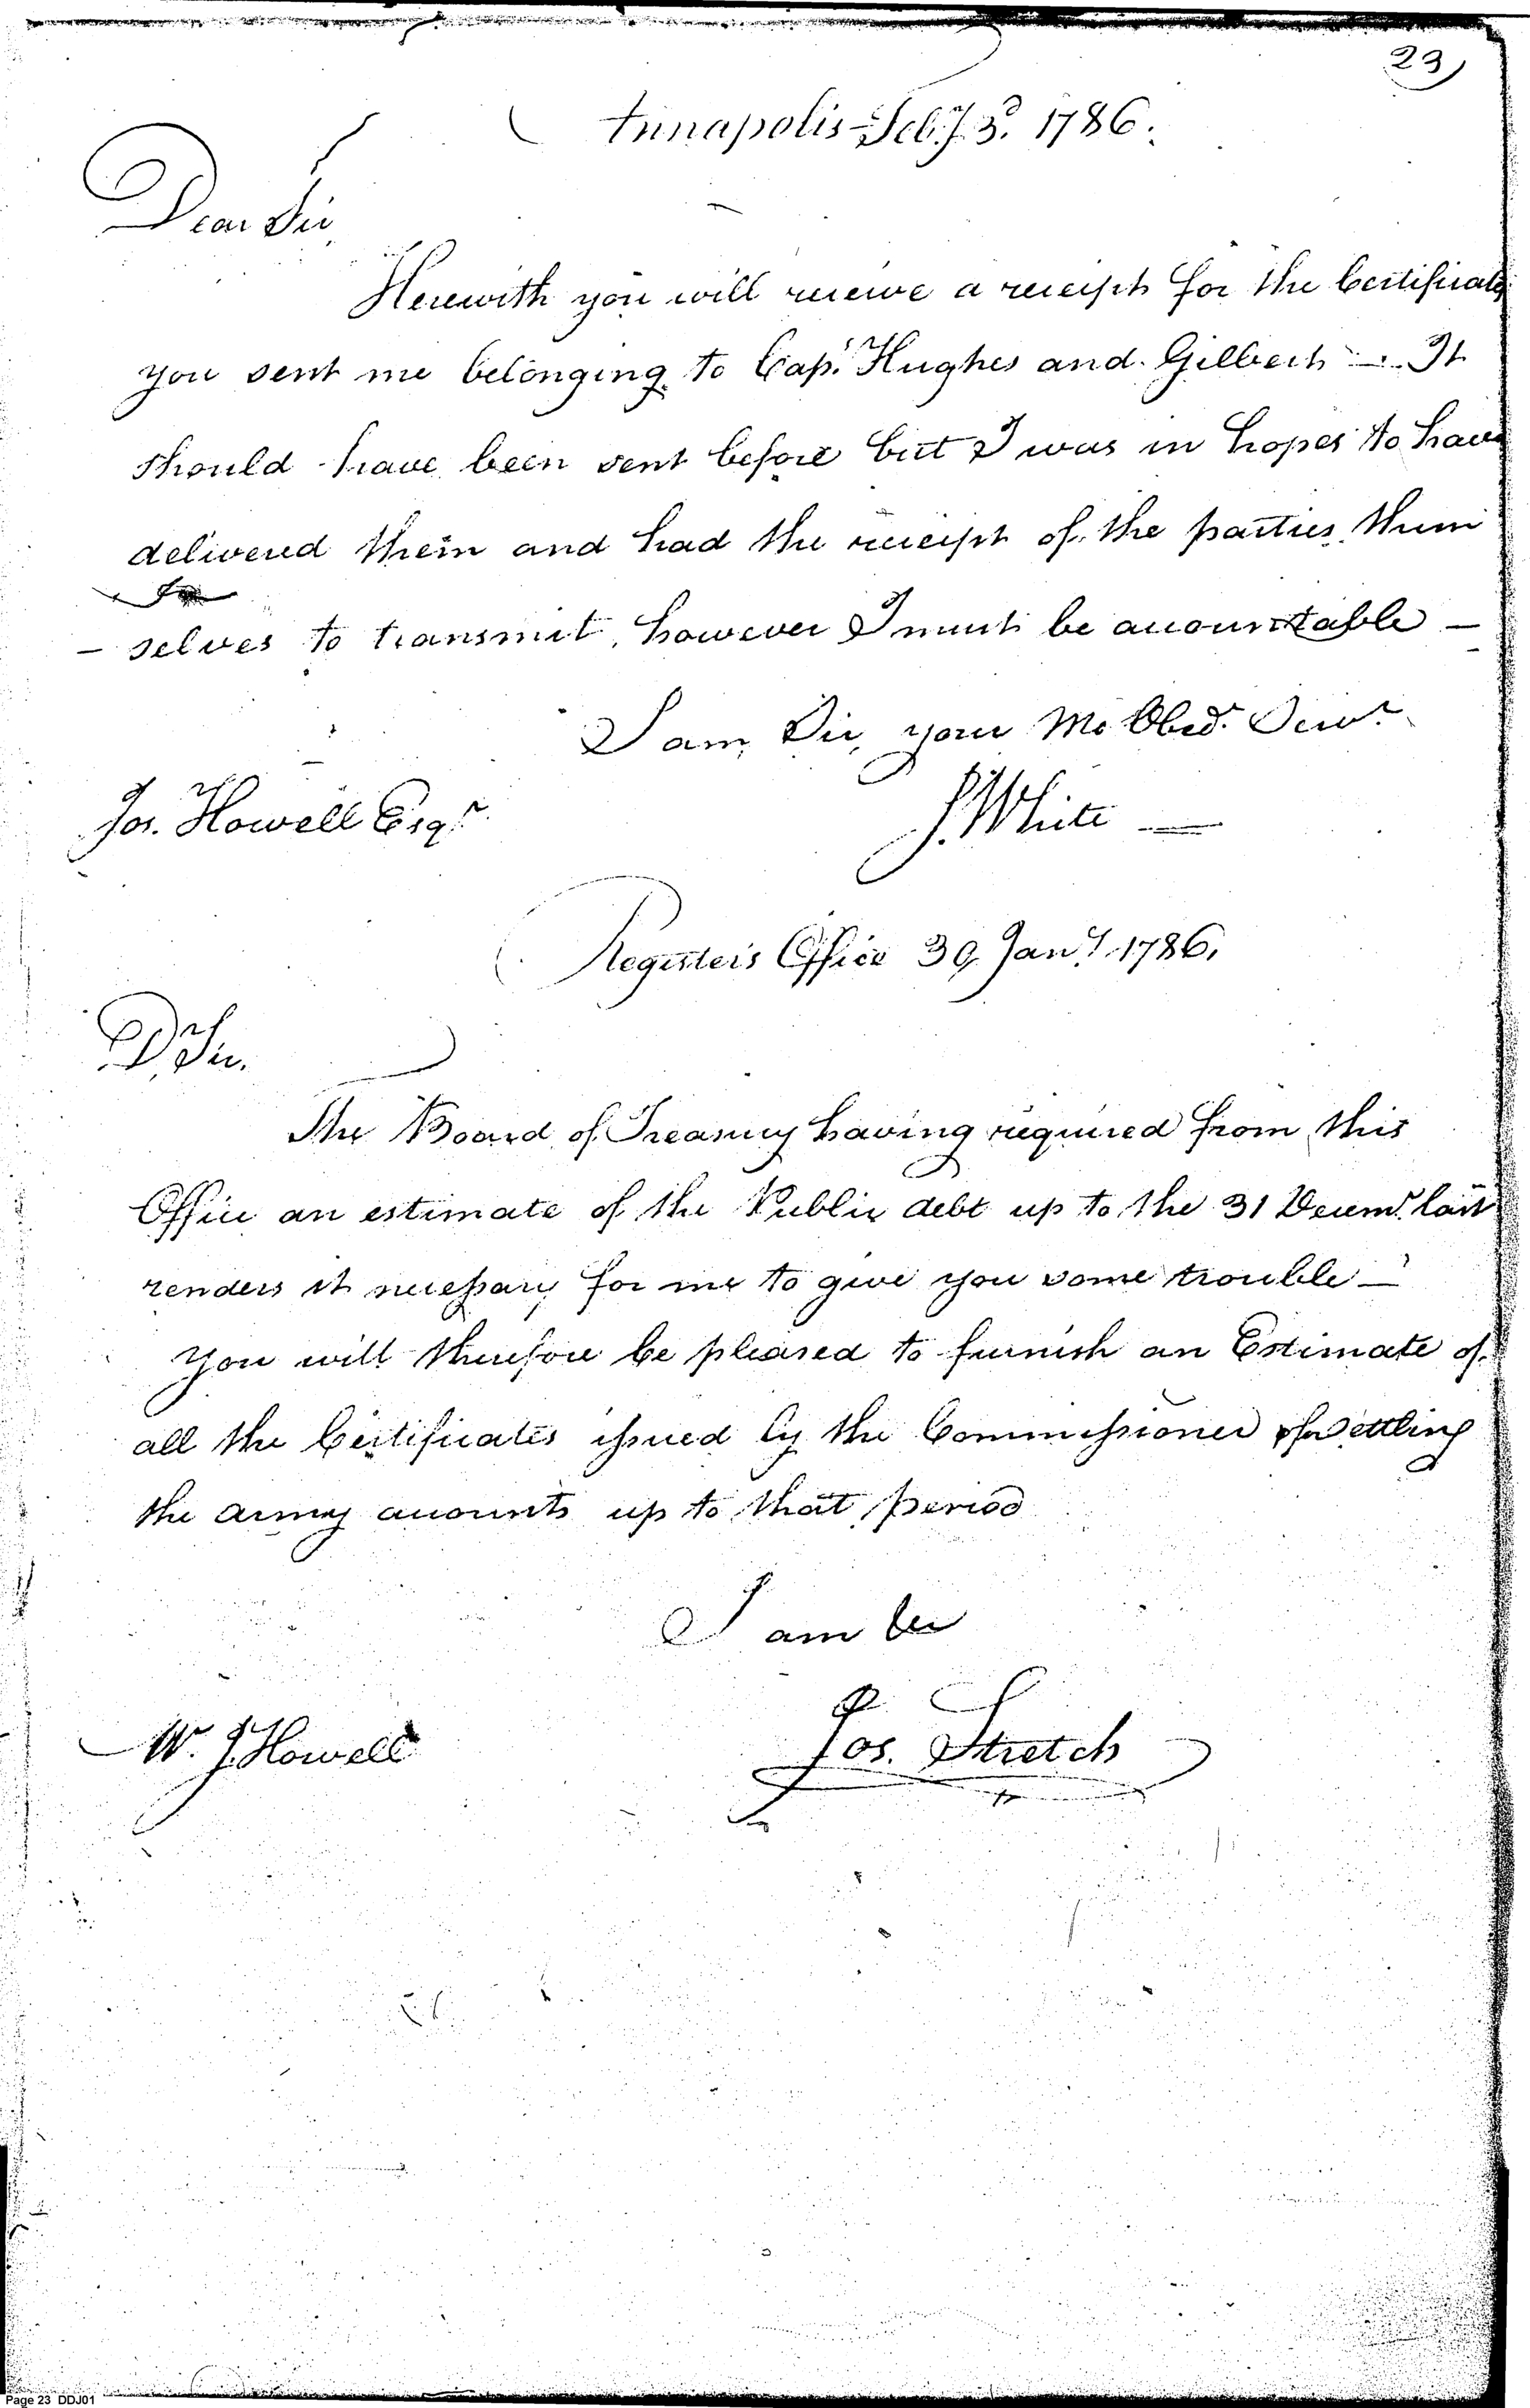 23)
Annapolis Feby. 3d. 1786.
Dear Sir,
Herewith you will receive a receipt for the Certificates
you sent me belonging to Capt. Hughes and Gilbert — It
should have been sent before but I was in hopes to have
delivered them and had the receipt of the parties them
- selves to transmit, however I must be accountable —
I am, Sir, your Mo Obed. Serv.t
J. White —
Jos. Howell Esqr.
Register's Office 30 Jany. 1786.
D Sir.
The Board of Treasury having required from this
Office an estimate of the Public debt up to the 31 Decemr. last
renders it necessary for me to give you some trouble —
You will therefore be pleased to furnish an Estimate of
all the Certificates issued by the Commissioner settling
the army accounts up to that period
I am
Jos. Stretch
W. J. Howell
Page 23 DDJ01